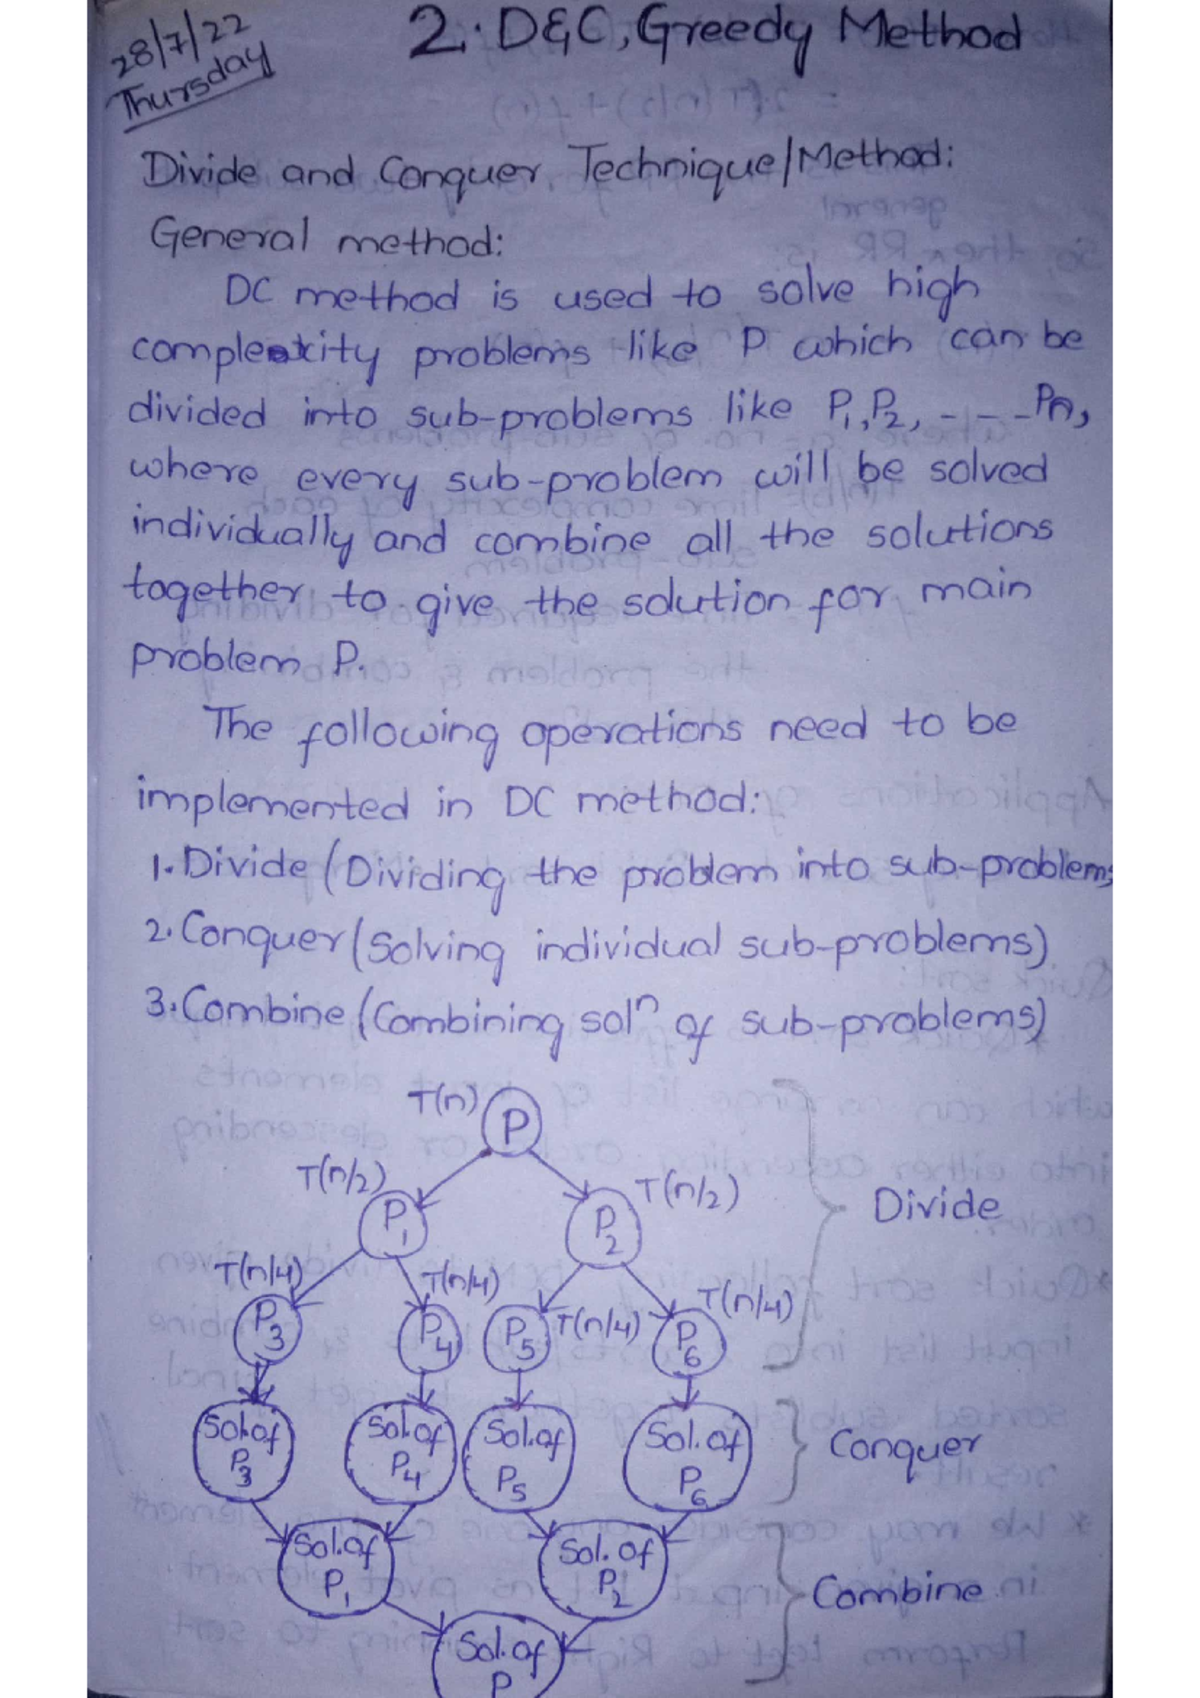 28/7/22
Thursday
2. D&C, Greedy Method
Divide and Conquer Technique/Method:
General method:
DC method is used to solve high
complexity problems like P which can be
divided into sub-problems like P₁, P₂, - - - Pn,
where every sub-problem will be solved
individually and combine all the solutions
together to give the solution for main
problem P.
The following operations need to be
implemented in DC method:
1. Divide (Dividing the problem into sub-problems
2. Conquer (Solving individual sub-problems)
3. Combine (Combining solⁿ of sub-problems)
T(n) P
T(n/2) P₁ P₂ T(n/2) Divide
T(n/4) P₃ T(n/4) P₄ P₅ T(n/4) P₆ T(n/4)
Sol. of P₃ Sol. of P₄ Sol. of P₅ Sol. of P₆ Conquer
Sol. of P₁ Sol. of P₂ Combine
Sol. of P